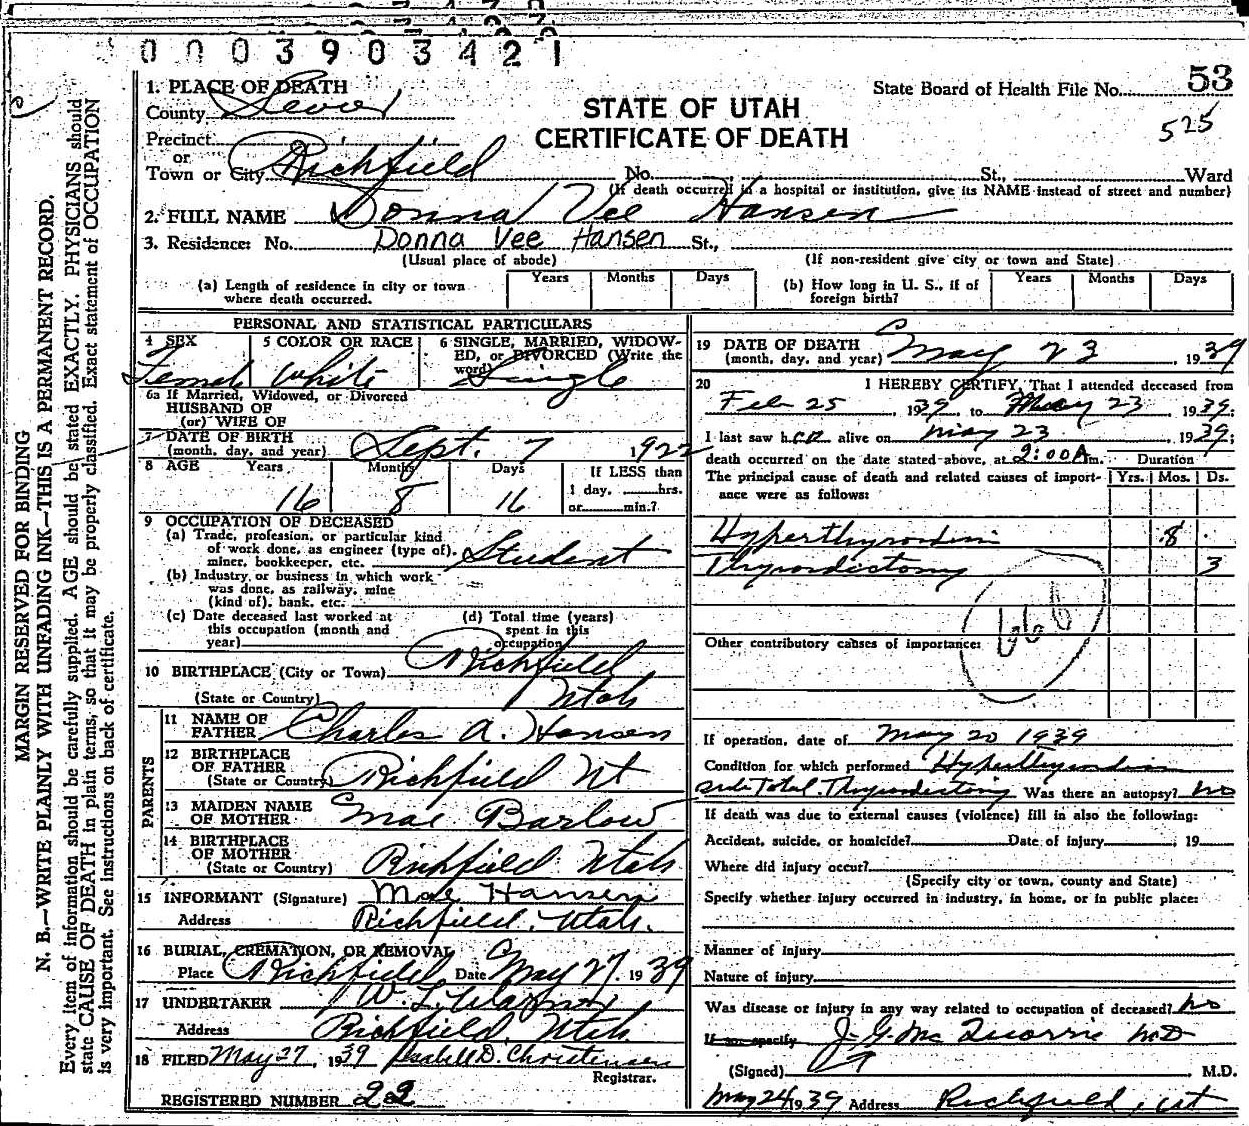 0003903421
1. PLACE OF DEATH
County Sevier
State Board of Health File No. 53
525
STATE OF UTAH
CERTIFICATE OF DEATH
Precinct
or
Town or City Richfield No. St., Ward
(If death occurred in a hospital or institution, give its NAME instead of street and number)
2. FULL NAME Donna Vee Hansen
3. Residence: No. Donna Vee Hansen St.,
(Usual place of abode) (If non-resident give city or town and State)
(a) Length of residence in city or town where death occurred. Years Months Days
(b) How long in U. S., if of foreign birth? Years Months Days
PERSONAL AND STATISTICAL PARTICULARS
4 SEX Female
5 COLOR OR RACE White
6 SINGLE, MARRIED, WIDOWED, or DIVORCED (Write the word) Single
6a If Married, Widowed, or Divorced
HUSBAND OF
(or) WIFE OF
7 DATE OF BIRTH
(month, day, and year) Sept. 7 1922
8 AGE Years 16 Months 8 Days 16 If LESS than
1 day, hrs.
or min.?
9 OCCUPATION OF DECEASED
(a) Trade, profession, or particular kind
of work done, as engineer (type of),
miner, bookkeeper, etc. Student
(b) Industry or business in which work
was done, as railway, mine
(kind of), bank, etc.
(c) Date deceased last worked at
this occupation (month and
year)
(d) Total time (years)
spent in this
occupation
10 BIRTHPLACE (City or Town) Richfield
(State or Country) Utah
PARENTS
11 NAME OF
FATHER Charles A. Hansen
12 BIRTHPLACE
OF FATHER
(State or Country) Richfield Ut
13 MAIDEN NAME
OF MOTHER Mae Barlow
14 BIRTHPLACE
OF MOTHER
(State or Country) Richfield Utah
15 INFORMANT (Signature) Mae Hansen
Address Richfield, Utah.
16 BURIAL, CREMATION, OR REMOVAL
Place Richfield Date May 27, 1939
17 UNDERTAKER W. L.
Address Richfield, Utah
18 FILED May 27, 1939 D. Christensen
Registrar.
REGISTERED NUMBER 22
19 DATE OF DEATH
(month, day, and year) May 23 1939
20 I HEREBY CERTIFY, That I attended deceased from
Feb 25, 1939, to May 23, 1939;
I last saw her alive on May 23, 1939;
death occurred on the date stated above, at 2:00 A m. Duration
The principal cause of death and related causes of importance were as follows: Yrs. Mos. Ds.
Hyperthyroidism 8
Thyroidectomy 3
66b
Other contributory causes of importance:
If operation, date of May 20 1939
Condition for which performed Hyperthyroidism
Sub Total Thyroidectomy Was there an autopsy? no
If death was due to external causes (violence) fill in also the following:
Accident, suicide, or homicide? Date of injury , 19
Where did injury occur?
(Specify city or town, county and State)
Specify whether injury occurred in industry, in home, or in public place:
Manner of injury
Nature of injury
Was disease or injury in any way related to occupation of deceased? no
If so, specify J. G. McQuarrie MD
(Signed) , M.D.
May 24 1939 Address Richfield, Ut
MARGIN RESERVED FOR BINDING
N. B.—WRITE PLAINLY WITH UNFADING INK—THIS IS A PERMANENT RECORD.
Every item of information should be carefully supplied. AGE should be stated EXACTLY. PHYSICIANS should
state CAUSE OF DEATH in plain terms, so that it may be properly classified. Exact statement of OCCUPATION
is very important. See instructions on back of certificate.